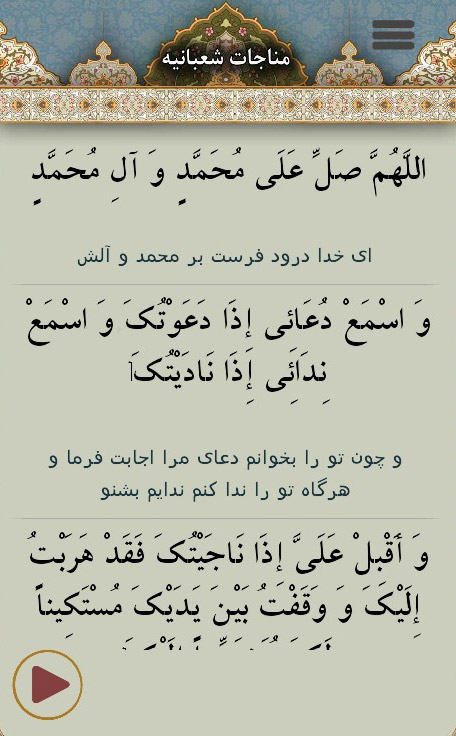 مناجات شعبانیه
اللَّهُمَّ صَلِّ عَلَى مُحَمَّدٍ وَ آلِ مُحَمَّدٍ
ای خدا درود فرست بر محمد و آلش
وَ اسْمَعْ دُعَائِی إِذَا دَعَوْتُکَ وَ اسْمَعْ
نِدَائِی إِذَا نَادَیْتُکَ
و چون تو را بخوانم دعای مرا اجابت فرما و
هرگاه تو را ندا کنم ندایم بشنو
وَ أَقْبِلْ عَلَیَّ إِذَا نَاجَیْتُکَ فَقَدْ هَرَبْتُ
إِلَیْکَ وَ وَقَفْتُ بَیْنَ یَدَیْکَ مُسْتَکِیناً